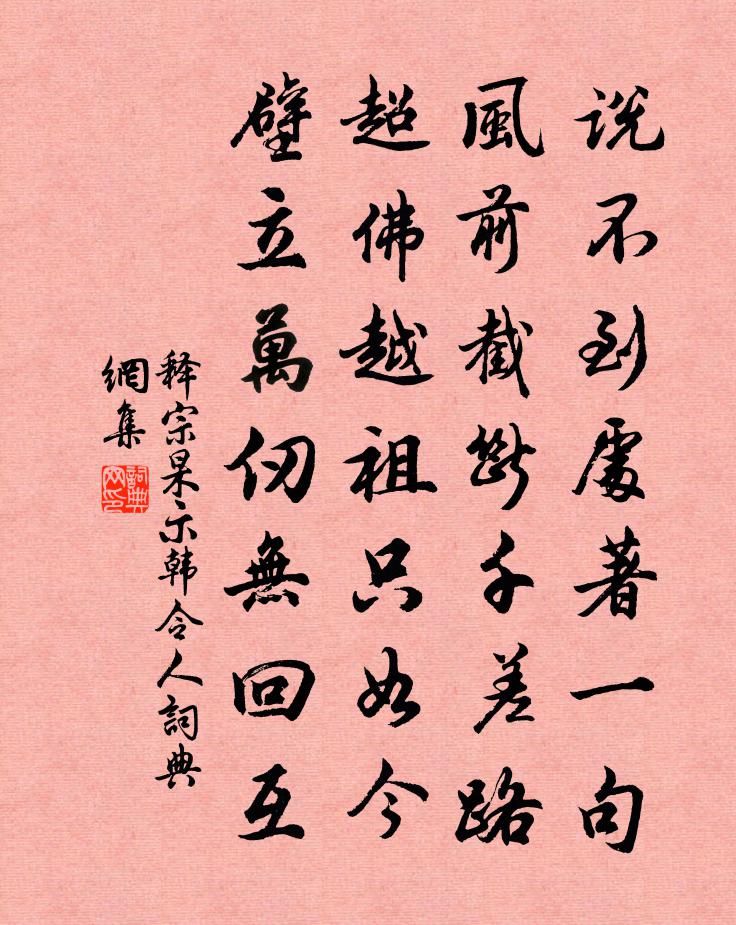 說不到處著一句
風前截斷千差路
超佛越祖只如今
壁立萬仞無回互
释宗杲示韩令人詞典
網集
詞典
网印